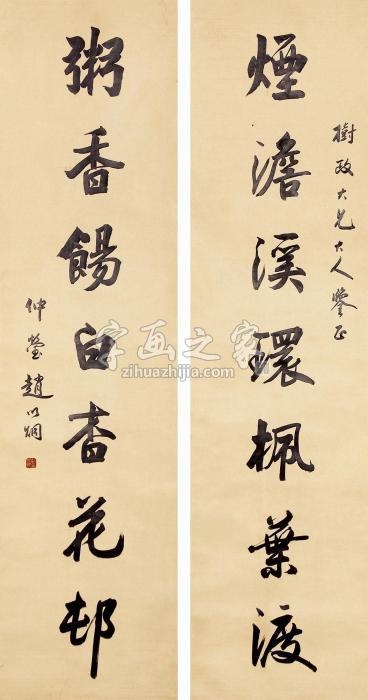 樹政大兄大人鑒正
煙澹溪環楓葉渡
粥香餳白杏花邨
仲瑩趙以烱
字画之家
zihuazhijia.com